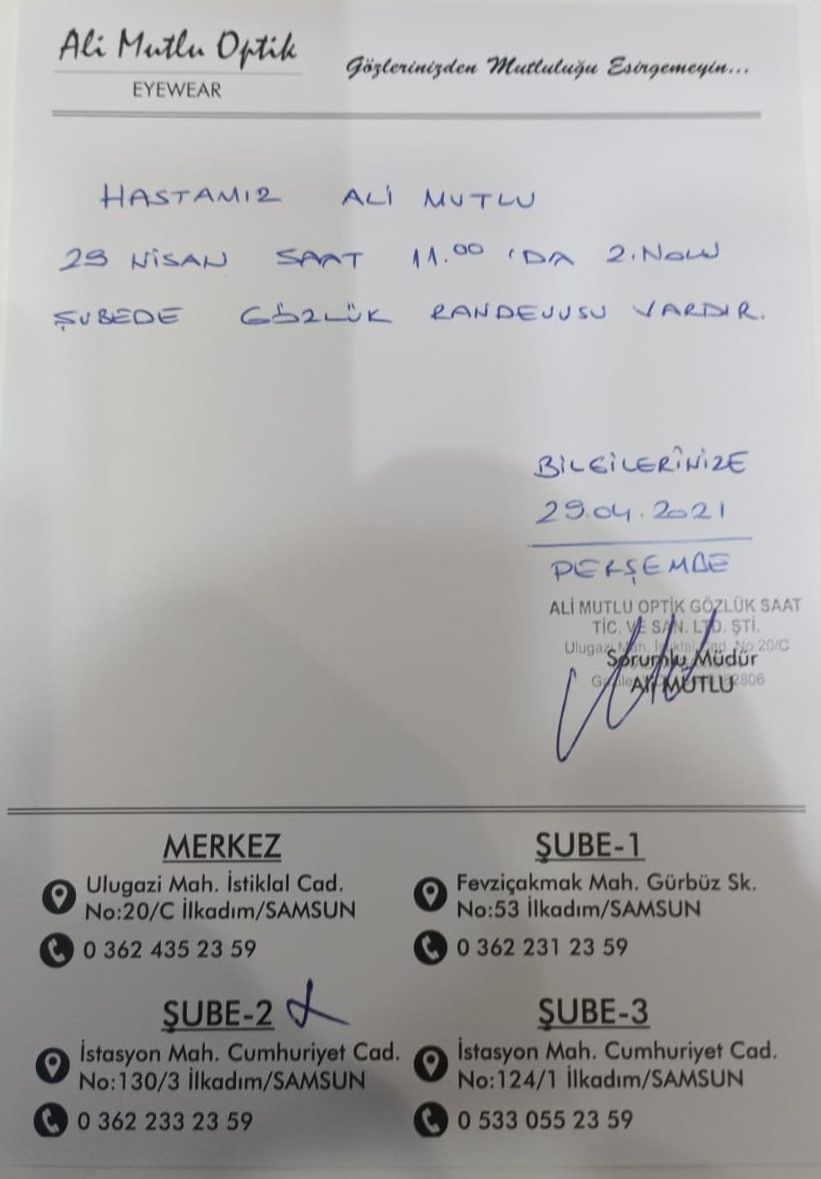 Ali Mutlu Optik
EYEWEAR
Gözlerinizden Mutluluğu Esirgemeyin...
HASTAMIZ ALİ MUTLU
29 NİSAN SAAT 11.00 'DA 2.NOLU
ŞUBEDE GÖZLÜK RANDEVUSU VARDIR.
BİLGİLERİNİZE
29.04.2021
PERŞEMBE
ALİ MUTLU OPTİK GÖZLÜK SAAT
TİC. VE SAN. LTD. ŞTİ.
Ulugazi Mah. İstiklal Cad. No:20/C
Sorumlu Müdür
Ali MUTLU
MERKEZ
Ulugazi Mah. İstiklal Cad.
No:20/C İlkadım/SAMSUN
0 362 435 23 59
ŞUBE-1
Fevziçakmak Mah. Gürbüz Sk.
No:53 İlkadım/SAMSUN
0 362 231 23 59
ŞUBE-2
İstasyon Mah. Cumhuriyet Cad.
No:130/3 İlkadım/SAMSUN
0 362 233 23 59
ŞUBE-3
İstasyon Mah. Cumhuriyet Cad.
No:124/1 İlkadım/SAMSUN
0 533 055 23 59